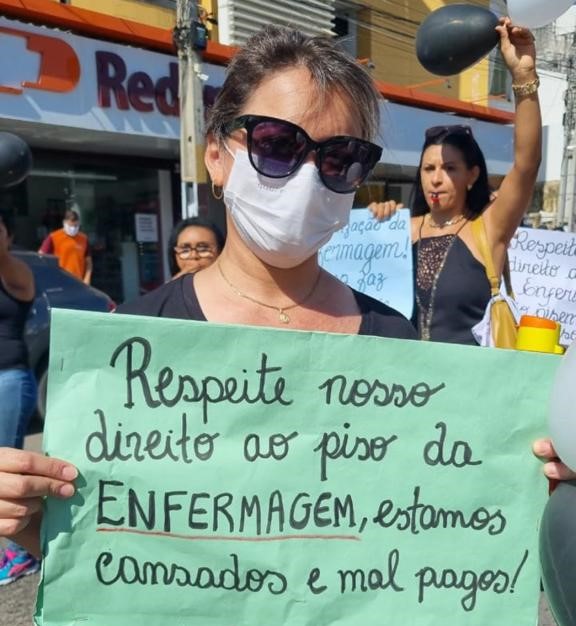 Red
Respeite nosso
direito ao piso da
ENFERMAGEM, estamos
cansados e mal pagos!
da
faz
Respeite
direito
Enferm